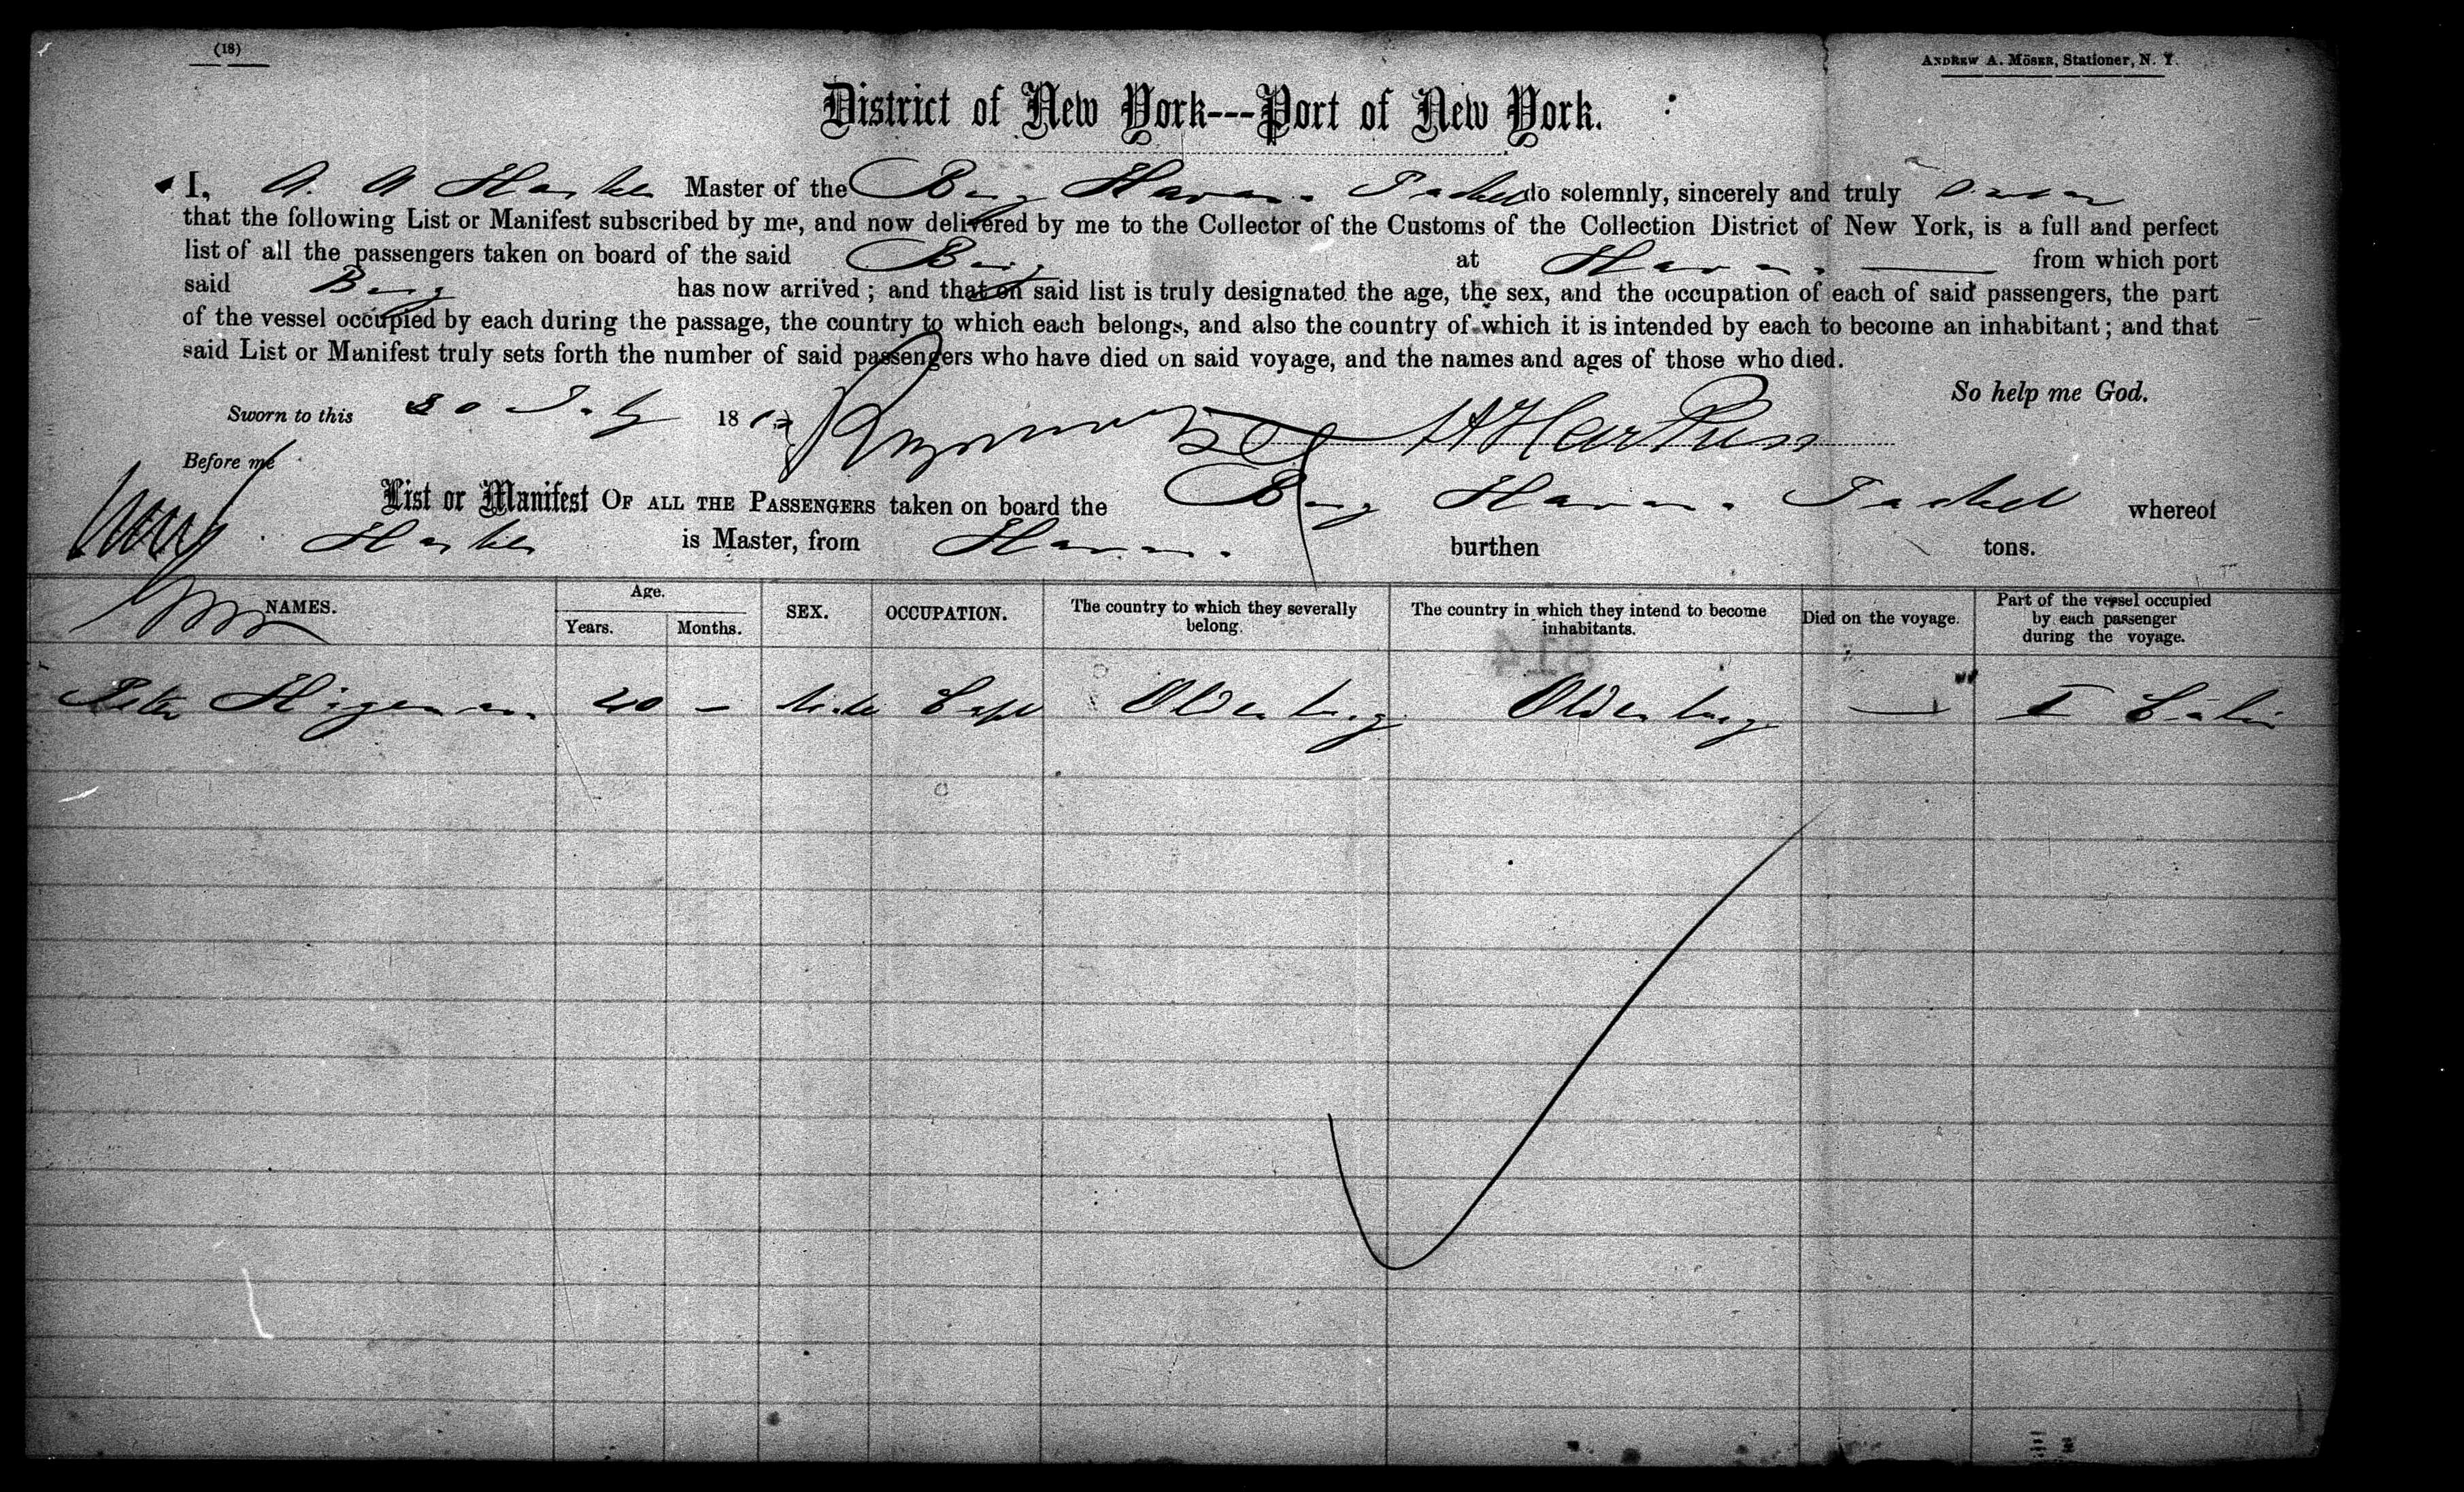 (18)
ANDREW A. MÖSER, Stationer, N. Y.
District of New York---Port of New York.
I, A. A Master of the Brig do solemnly, sincerely and truly
that the following List or Manifest subscribed by me, and now delivered by me to the Collector of the Customs of the Collection District of New York, is a full and perfect
list of all the passengers taken on board of the said Brig at from which port
said Brig has now arrived; and that on said list is truly designated the age, the sex, and the occupation of each of said passengers, the part
of the vessel occupied by each during the passage, the country to which each belongs, and also the country of which it is intended by each to become an inhabitant; and that
said List or Manifest truly sets forth the number of said passengers who have died on said voyage, and the names and ages of those who died.
So help me God.
Sworn to this 30 July 18
Before me
List or Manifest OF ALL THE PASSENGERS taken on board the Brig whereof
is Master, from burthen tons.
NAMES.
Age.
Years.
Months.
SEX.
OCCUPATION.
The country to which they severally
belong.
The country in which they intend to become
inhabitants.
Died on the voyage.
Part of the vessel occupied
by each passenger
during the voyage.
814
Peter 40 — Male Capt Oldenburg Oldenburg — Cabin